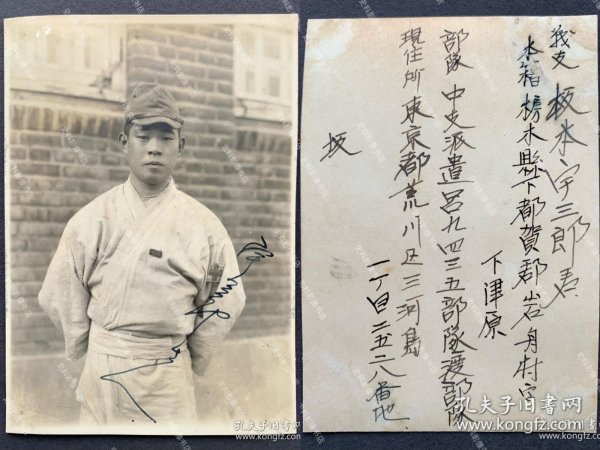 戦友 板本宇三郎君
本籍栃木縣下都賀郡岩舟村字
下津原
部隊 中支派遣呂九四三五部隊渡部隊
現住所 東京都荒川区三河島
一丁目二五二八番地
坂
孔夫子旧书网
www.kongfz.com
孔夫子旧书网
www.kongfz.com